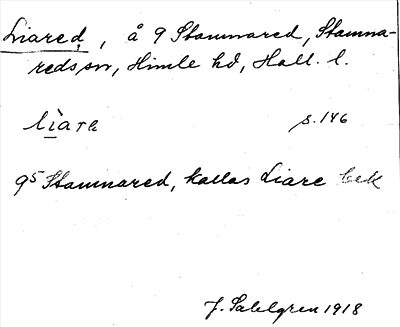 Liared, , å 9 Stamnared, Stamna-
reds sn, Himle hd, Hall. l.
s. 146
9⁵ Stamnared, kallas Liare bek
J. Sahlgren 1918